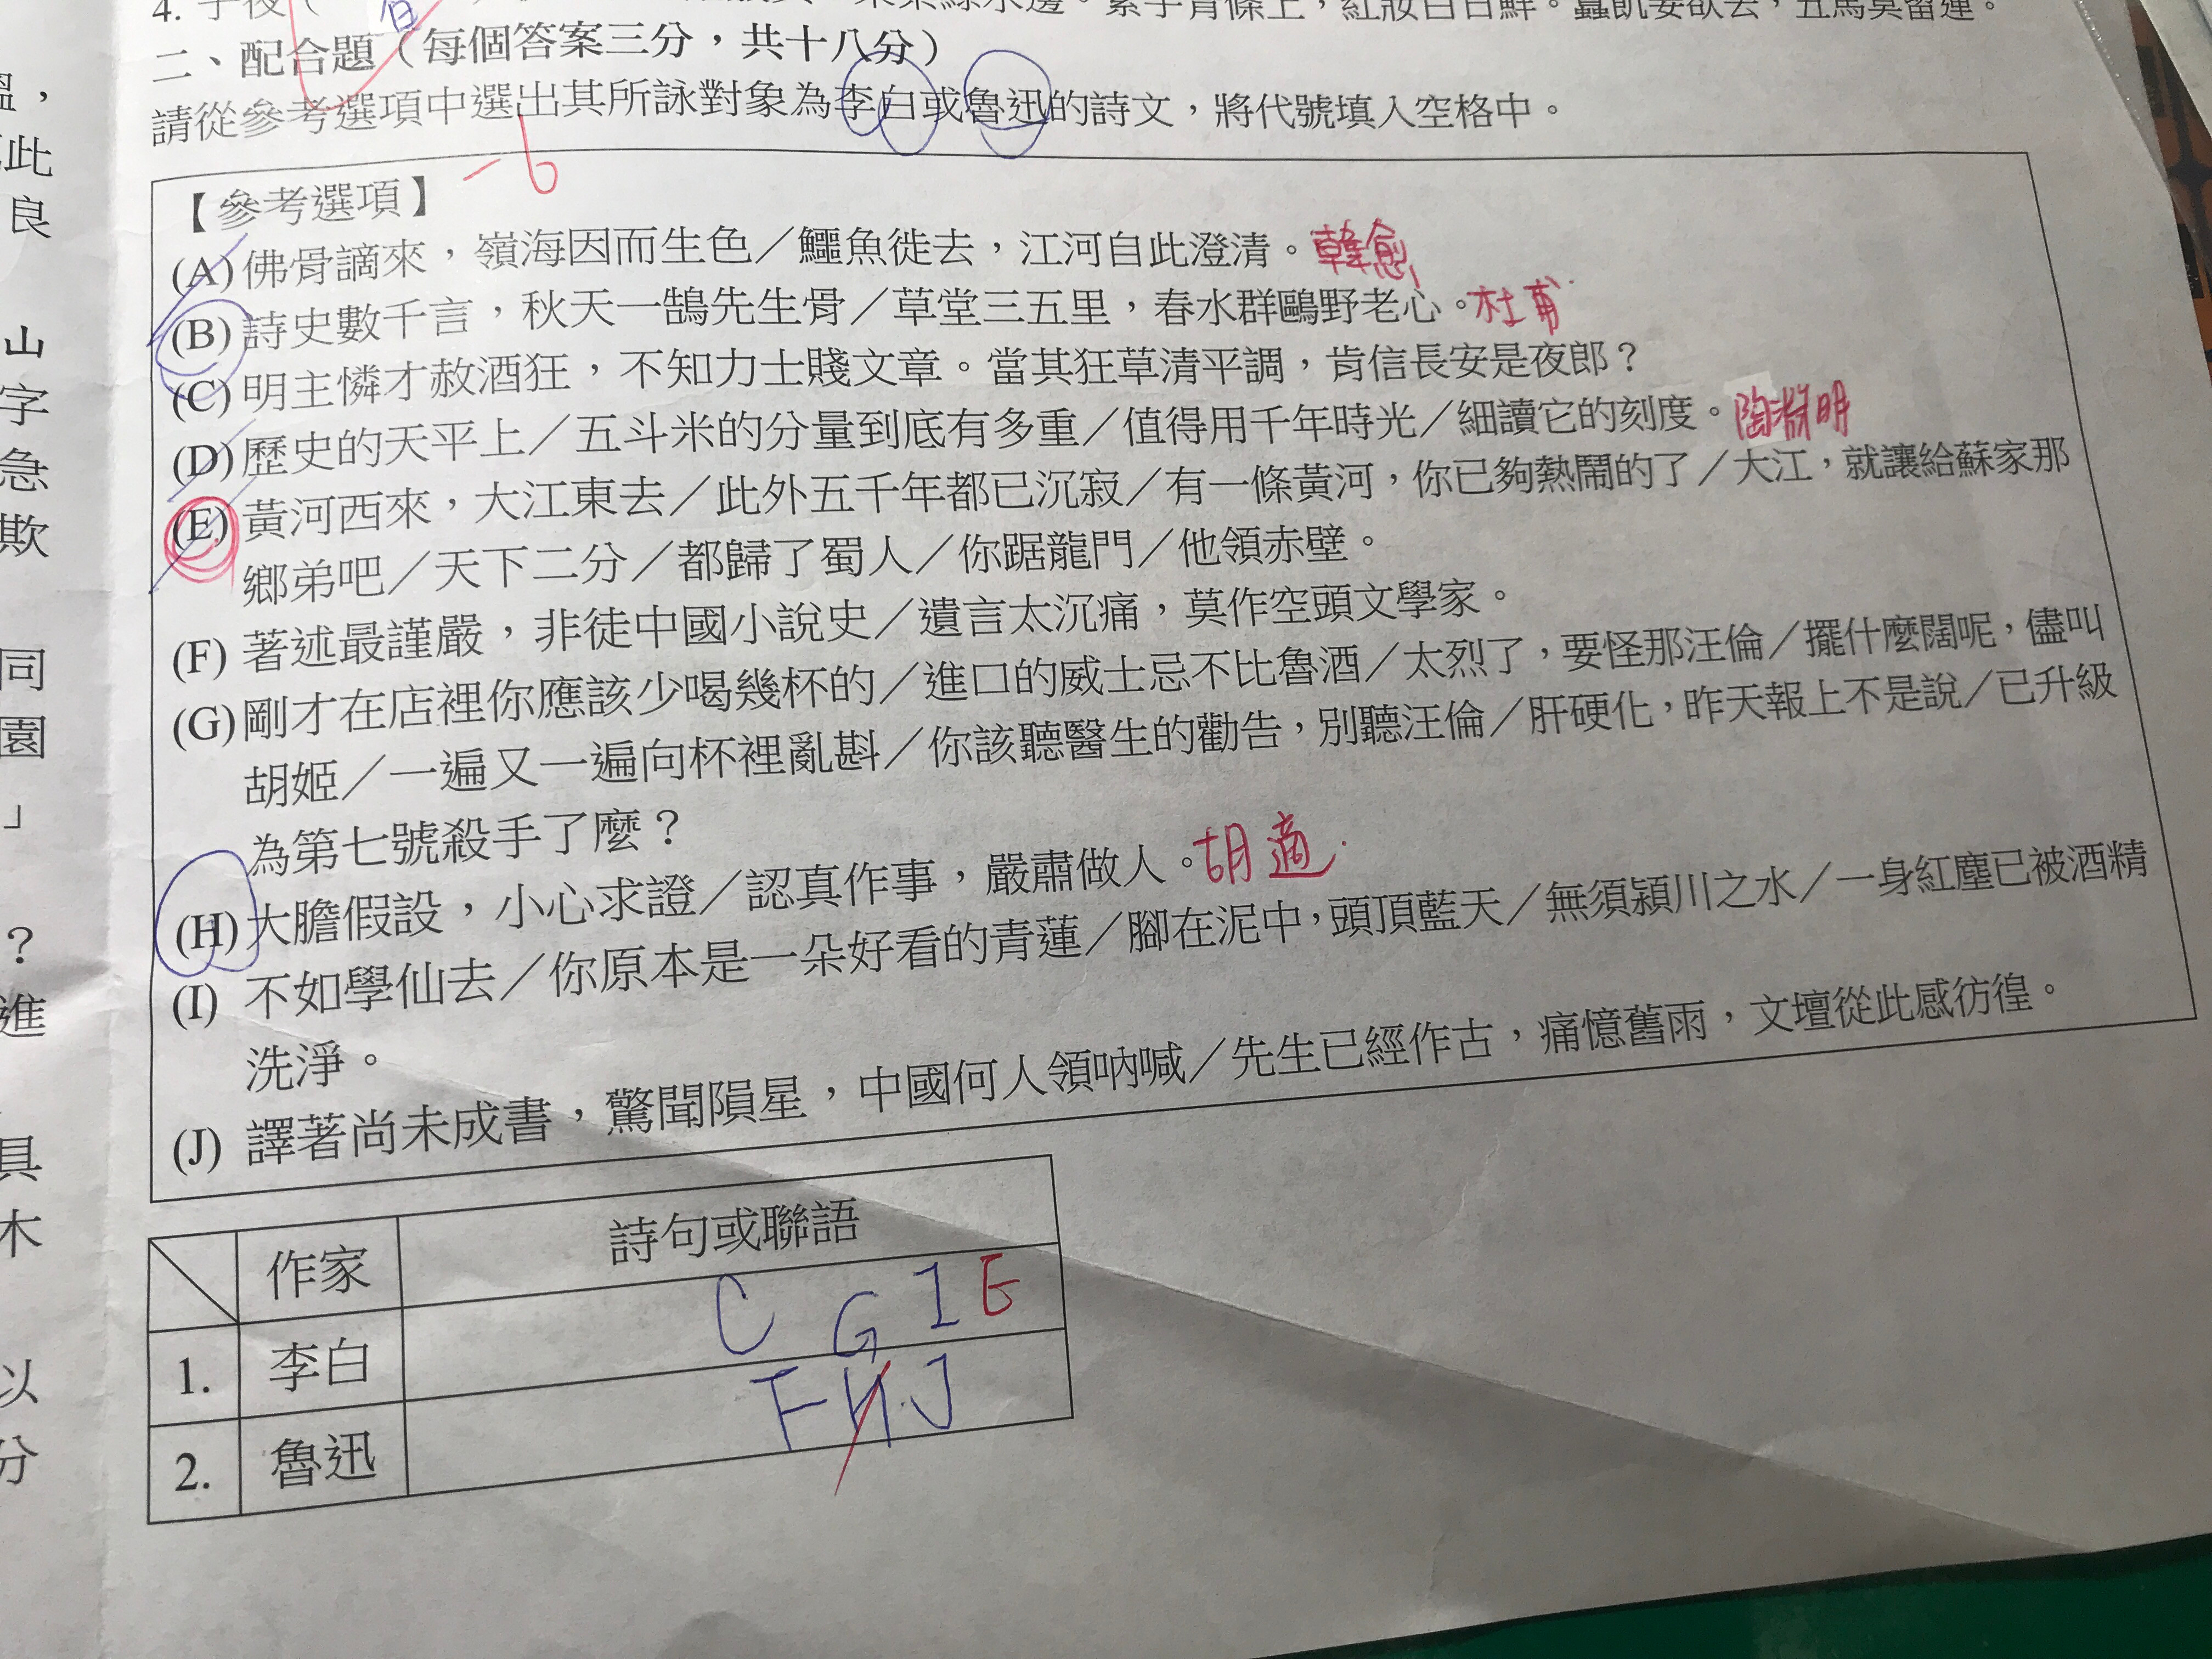 二、配合題（每個答案三分，共十八分）
請從參考選項中選出其所詠對象為李白或魯迅的詩文，將代號填入空格中。
-6
【參考選項】
(A) 佛骨謫來，嶺海因而生色／鱷魚徙去，江河自此澄清。韓愈
(B) 詩史數千言，秋天一鵠先生骨／草堂三五里，春水群鷗野老心。杜甫
(C) 明主憐才赦酒狂，不知力士賤文章。當其狂草清平調，肯信長安是夜郎？
(D) 歷史的天平上／五斗米的分量到底有多重／值得用千年時光／細讀它的刻度。陶淵明
(E) 黃河西來，大江東去／此外五千年都已沉寂／有一條黃河，你已夠熱鬧的了／大江，就讓給蘇家那
鄉弟吧／天下二分／都歸了蜀人／你踞龍門／他領赤壁。
(F) 著述最謹嚴，非徒中國小說史／遺言太沉痛，莫作空頭文學家。
(G) 剛才在店裡你應該少喝幾杯的／進口的威士忌不比魯酒／太烈了，要怪那汪倫／擺什麼闊呢，儘叫
胡姬／一遍又一遍向杯裡亂斟／你該聽醫生的勸告，別聽汪倫／肝硬化，昨天報上不是說／已升級
為第七號殺手了麼？
(H) 大膽假設，小心求證／認真作事，嚴肅做人。胡適
(I) 不如學仙去／你原本是一朵好看的青蓮／腳在泥中，頭頂藍天／無須潁川之水／一身紅塵已被酒精
洗淨。
(J) 譯著尚未成書，驚聞隕星，中國何人領吶喊／先生已經作古，痛憶舊雨，文壇從此感彷徨。
作家 詩句或聯語
1. 李白 C G I E
2. 魯迅 F H J